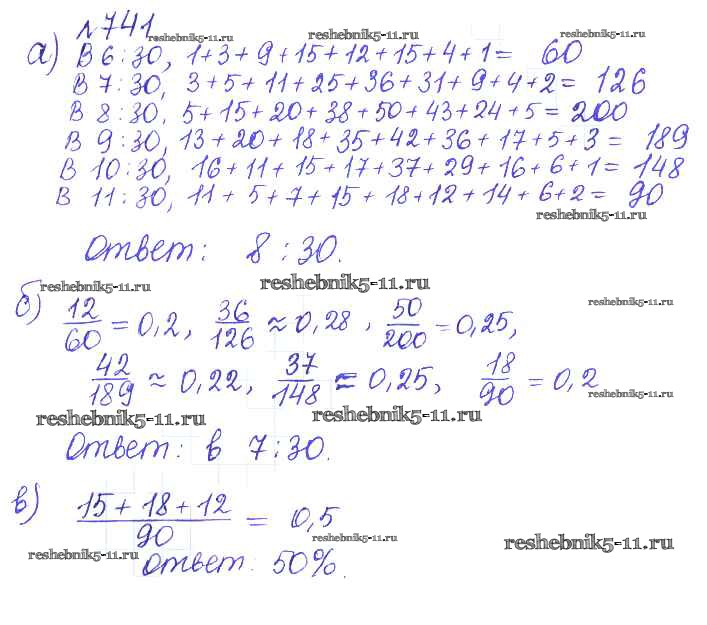 №741
reshebnik5-11.ru reshebnik5-11.ru reshebnik5-11.ru
а) В 6:30, 1+3+9+15+12+15+4+1= 60
В 7:30, 3+5+11+25+36+31+9+4+2= 126
В 8:30, 5+15+20+38+50+43+24+5=200
В 9:30, 13+20+18+35+42+36+17+5+3= 189
В 10:30, 16+11+15+17+37+29+16+6+1=148
В 11:30, 11+5+7+15+18+12+14+6+2= 90
reshebnik5-11.ru
Ответ: 8:30.
reshebnik5-11.ru reshebnik5-11.ru reshebnik5-11.ru
б) 12/60=0,2, 36/126≈0,28, 50/200=0,25,
42/189≈0,22, 37/148=0,25, 18/90=0,2
reshebnik5-11.ru reshebnik5-11.ru reshebnik5-11.ru
Ответ: в 7:30.
в) (15+18+12)/90 = 0,5
reshebnik5-11.ru reshebnik5-11.ru reshebnik5-11.ru
Ответ: 50%.